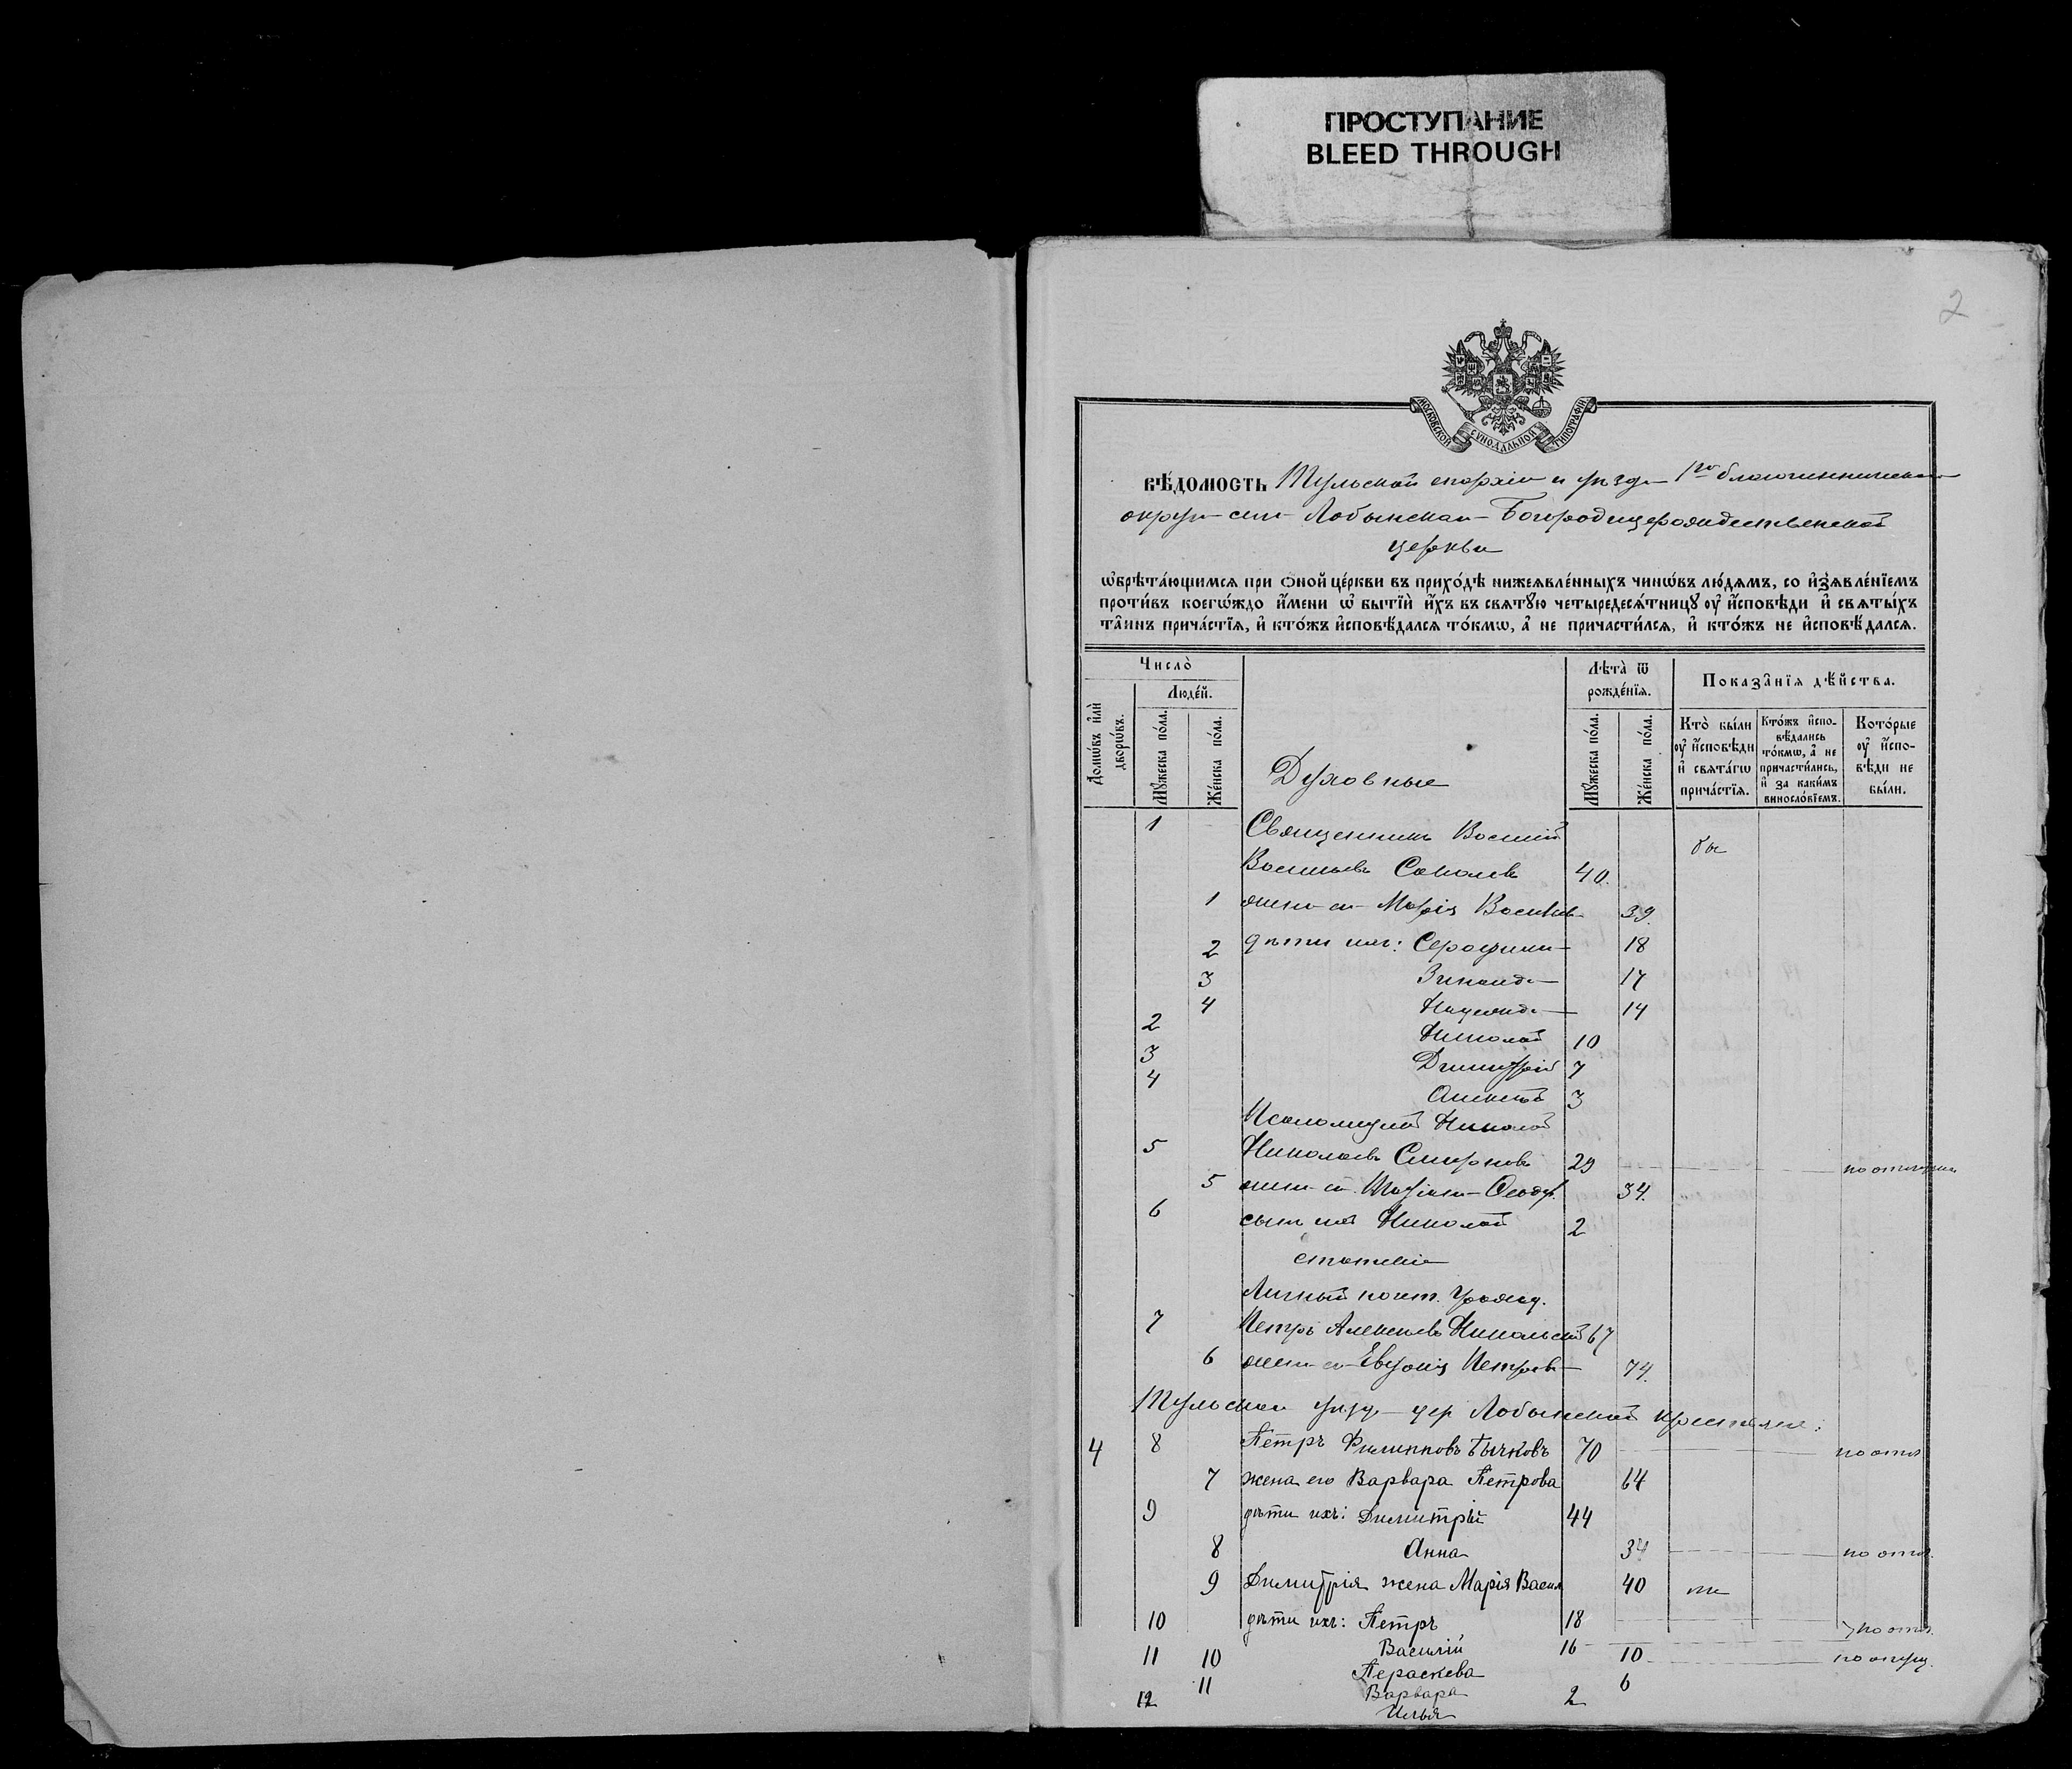 ПРОСТУПАНИЕ
BLEED THROUGH
2
МОСКОВСКОЙ СѴНОДАЛЬНОЙ ТИПОГРАФІИ
ВѢ́ДОМОСТЬ Тульской епархіи и уѣзда 1го благочинническаго
округа села Лобынскаго Богородицерождественской
церкви
ѡ҆брѣта́ющимсѧ при ѻ҆ной це́ркви въ прихо́дѣ нижеѧвле́нныхъ чинѡ́въ лю́дѧмъ, со и҆з̾ѧвле́нїемъ
проти́въ коегѡ́ждо и҆́мени ѡ҆ бытїѝ и҆́хъ въ свѧту́ю четыредесѧ́тницу ᲂу҆ и҆́сповѣди и҆ свѧты́хъ
та̑инъ прича́стїѧ, и҆ кто́жъ и҆сповѣ́далсѧ то́кмѡ, а҆ не причасти́лсѧ, и҆ кто́жъ не и҆сповѣ́далсѧ.
Число̀
Люде́й.
Лѣта̀ ѿ рожде́нїѧ.
Показа̑нїѧ дѣ́йства.
Домѡ́въ и҆лѝ дворѡ́въ.
Му́жеска по́ла.
Же́нска по́ла.
Духовные
Му́жеска по́ла.
Же́нска по́ла.
Кто̀ бы́ли ᲂу҆ и҆́сповѣди и҆ свѧта́гѡ прича́стїѧ.
Кто́жъ и҆спо-вѣ́дались то́кмѡ, а҆ не причасти́лись, и҆ за каки́мъ виносло́вїемъ.
Кото́рые ᲂу҆ и҆́спо-вѣди не бы́ли.
1 Священникъ Василій
Васильевъ Соколовъ 40. бы
1 жена его Марія Васильев 39.
2 дѣти ихъ: Серафима 18
3 Зинаида 17
4 Надежда 14
2 Николай 10
3 Димитрій 7
4 Алексѣй 3
Псаломщикъ Николай
5 Николаевъ Смирновъ 29
5 жена его 34.
6 сынъ ихъ Николай 2
Личный почет. гражд.
7 Петръ Алексѣевъ Никольскій 67
6 жена его Евдокія Петрова 74.
Тульскаго уѣзда дер Лобынской крестьяне:
4 8 Петръ Филипповъ Бычковъ 70 по отл
7 жена его Варвара Петрова 64
9 дѣти ихъ: Димитрій 44
8 Анна 34 по отл.
9 Димитрія жена Марія Васил 40
10 дѣти ихъ: Петръ 18 по отл.
11 Василій 16
10 Параскева 10
11 Варвара 6
12 Илья 2